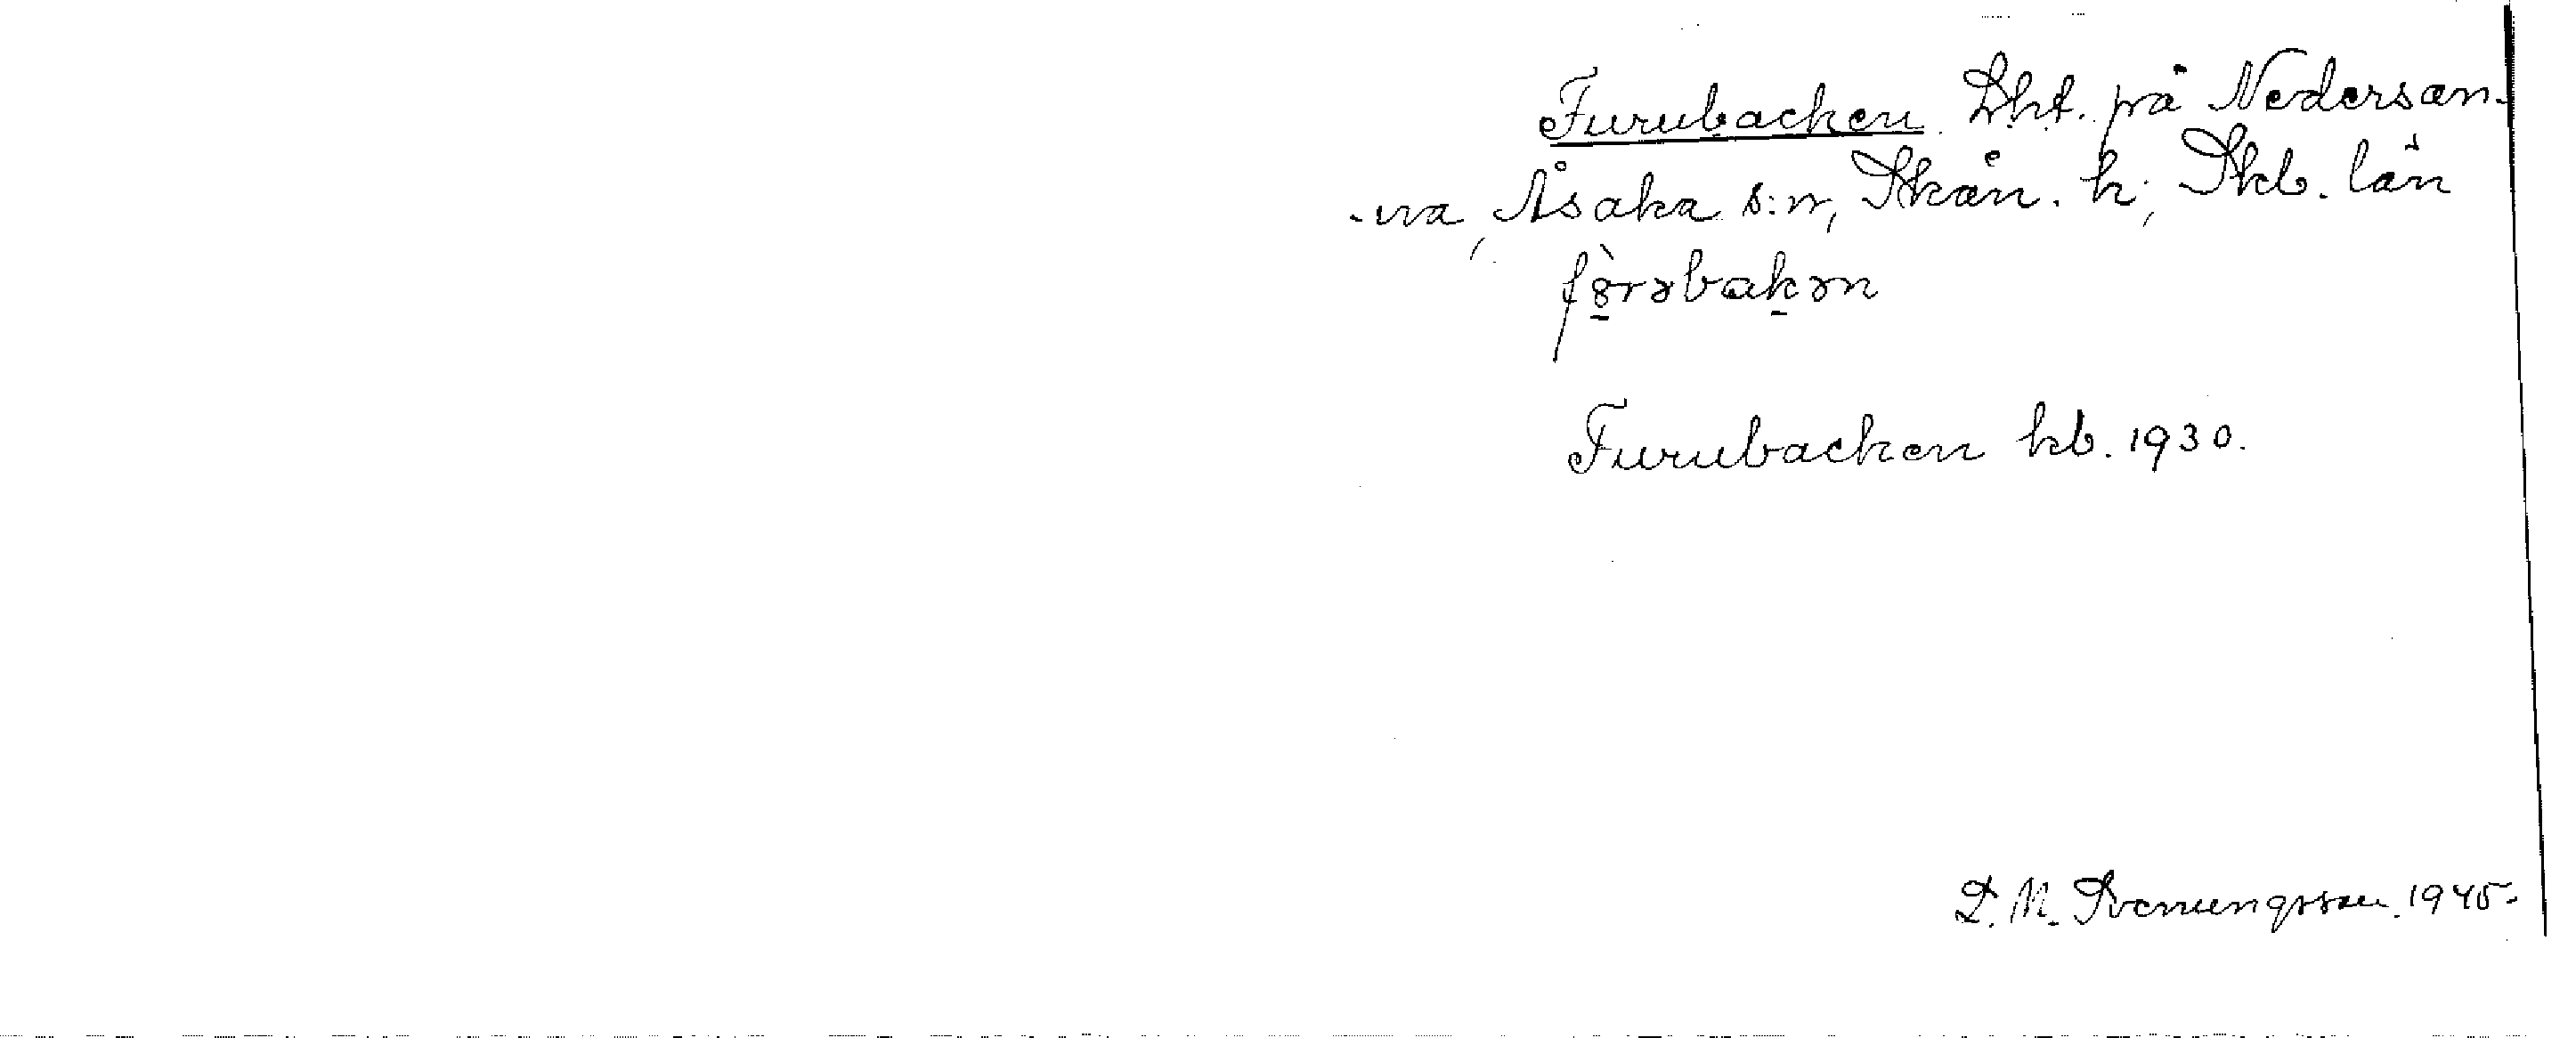 Furubacken. Lht. på Nedersän-
-na, Åsaka s:n, Skån. h., Skb. län
fȣ̀rəbakən
Furubacken kb. 1930.
D. M. Svenungsson. 1945.